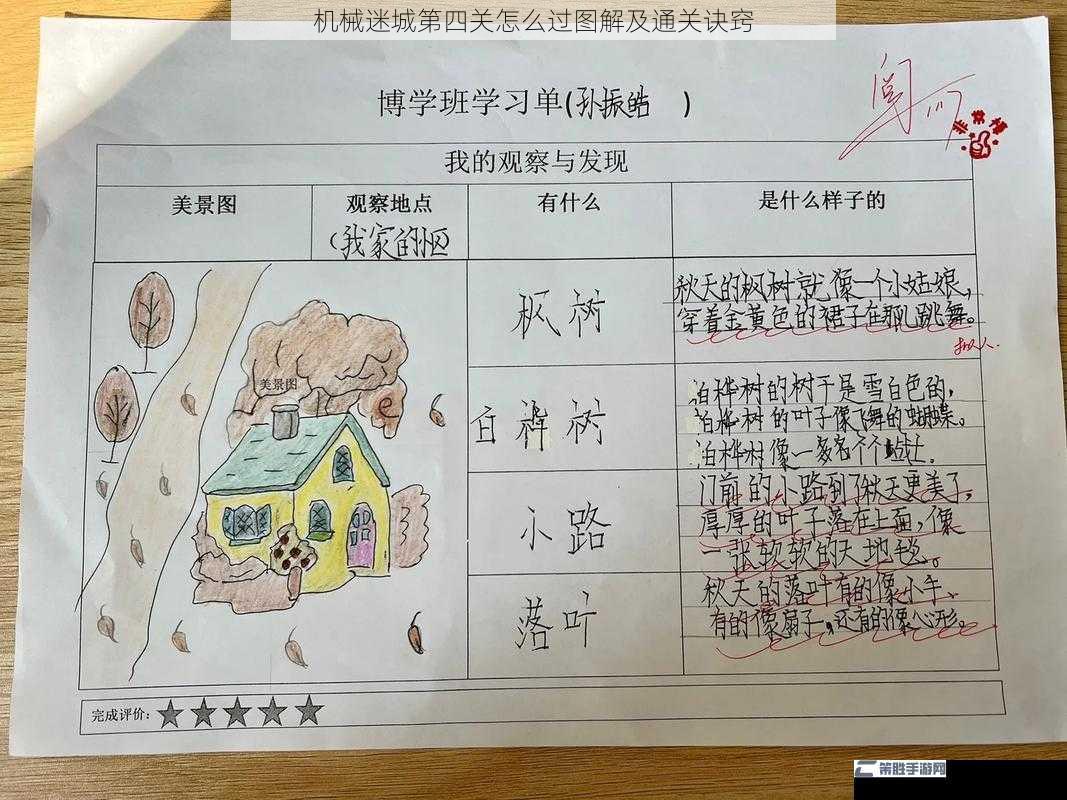 机械迷城第四关怎么过图解及通关诀窍
博学班学习单(孙振皓 )
阅
非常棒
我的观察与发现
美景图
观察地点
(我家的小区)
有什么
是什么样子的
美景图
枫树
秋天的枫树就像一个小姑娘,
穿着金黄色的裙子在那儿跳舞。
拟人.
白桦树
白桦树的树干是雪白色的,
白桦树的叶子像飞舞的蝴蝶。
白桦树像一
小路
门前的小路到了秋天更美了,
厚厚的叶子落在上面,像
一张软软的大地毯。
落叶
秋天的落叶有的像小牛、
有的像扇子,还有的像心形。
完成评价:★★★★★
策胜手游网